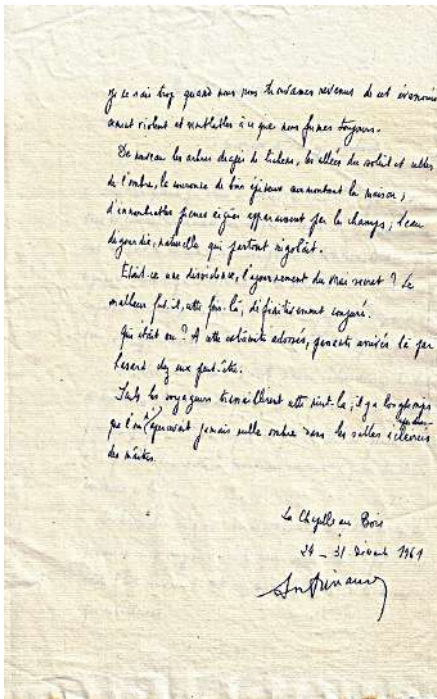 Je ne sais trop quand nous nous trouvâmes revenus de cet évanouis
ement violent et semblables à ce que nous fûmes toujours.
De nouveau les arbres de lichens, les allées du soleil et celles
de l'ombre, la couronne de bois épineux surmontant la maison ;
d'innombrables apparaissent par les champs ; l'eau
dégourdie, naturelle qui partout rigolait.
Était-ce une dissidence, l'ajournement du vrai secret ? Le
malheur fut-il, cette fois-là, définitivement conjuré.
Qui était-on ? A cette extrémité adossés, arrivés là par
hasard chez eux peut-être.
Seuls les voyageurs tressaillirent cette nuit-là ; il y a longtemps
que l'on jamais nulle ombre dans les salles
des maîtres.
La Chapelle aux Bois
24 - 31 Décemb 1961